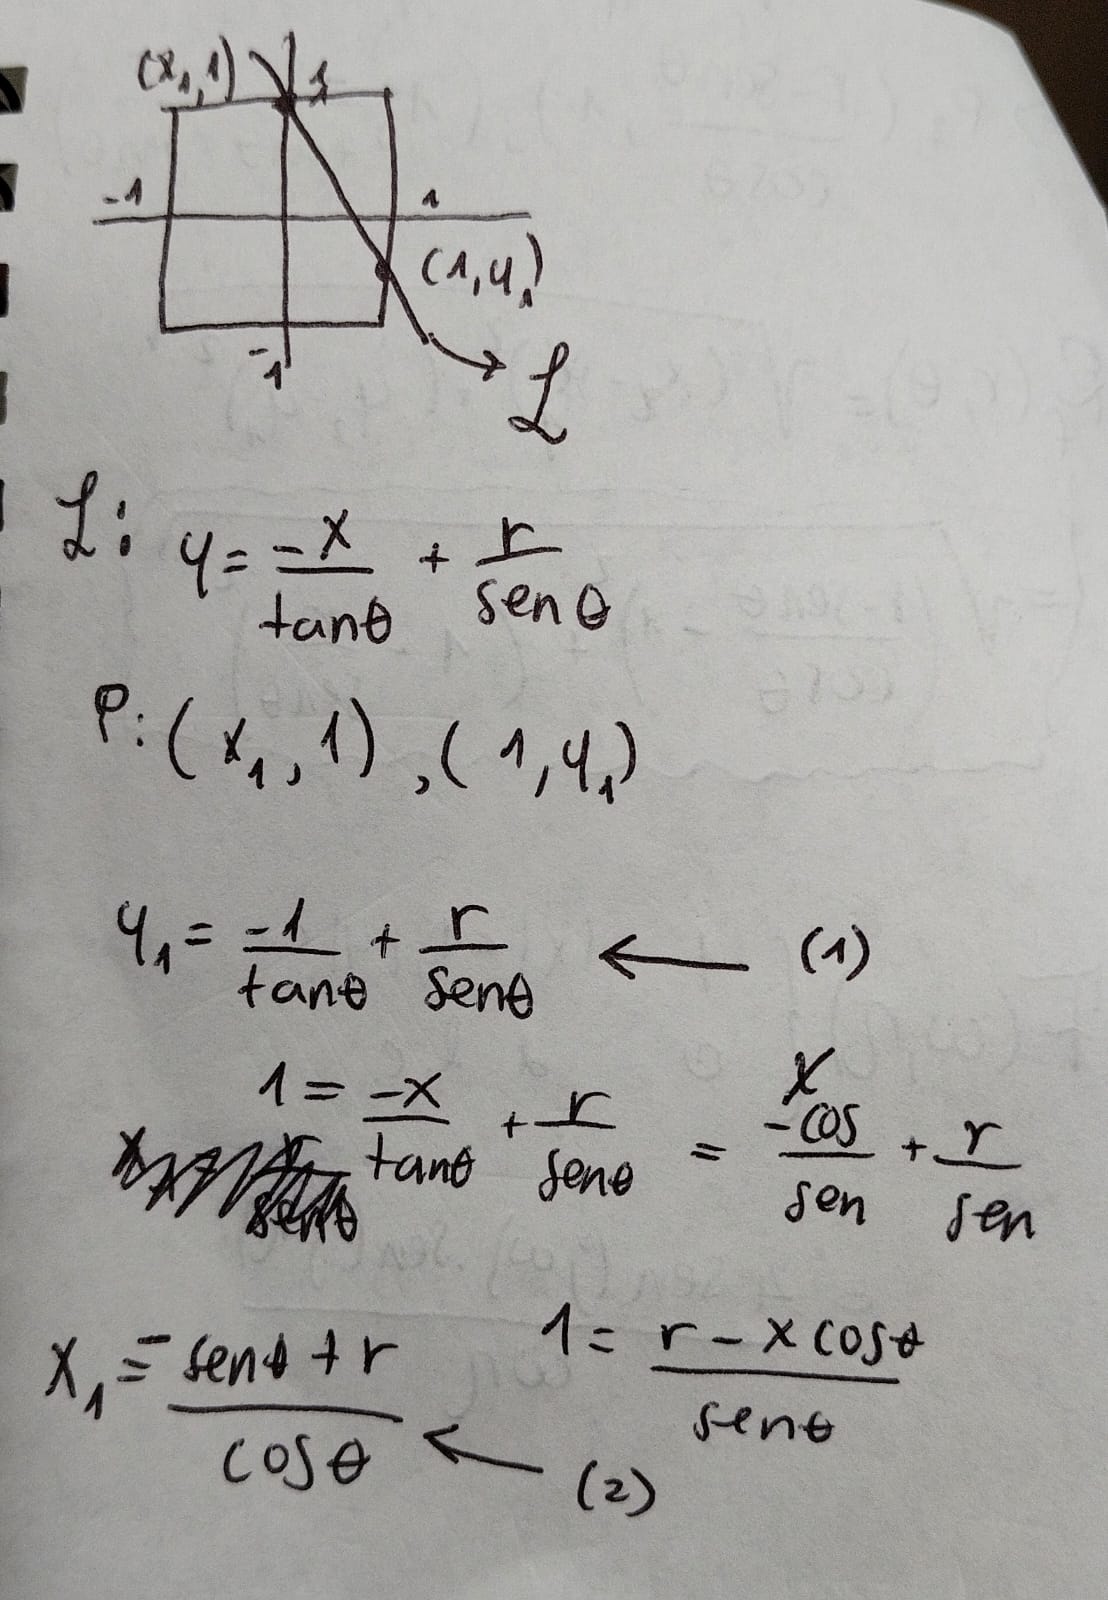 (x₁,1) 1
-1 1
(1,y₁)
-1
L
L: y = -x/tanθ + r/senθ
P: (x₁, 1), (1, y₁)
y₁ = -1/tanθ + r/senθ ← (1)
1 = -x/tanθ + r/senθ = x -cos/sen + r/sen
x₁ = (-senθ + r)/cosθ ← (2) 1 = (r - x cosθ)/senθ